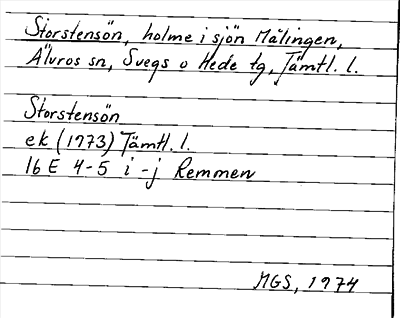 Storstensön, holme i sjön Målingen,
Älvros sn, Svegs o Hede tg, Jämtl. l.
Storstensön
ek (1973) Jämtl. l.
16 E 4-5 i - j Remmen
MGS, 1974